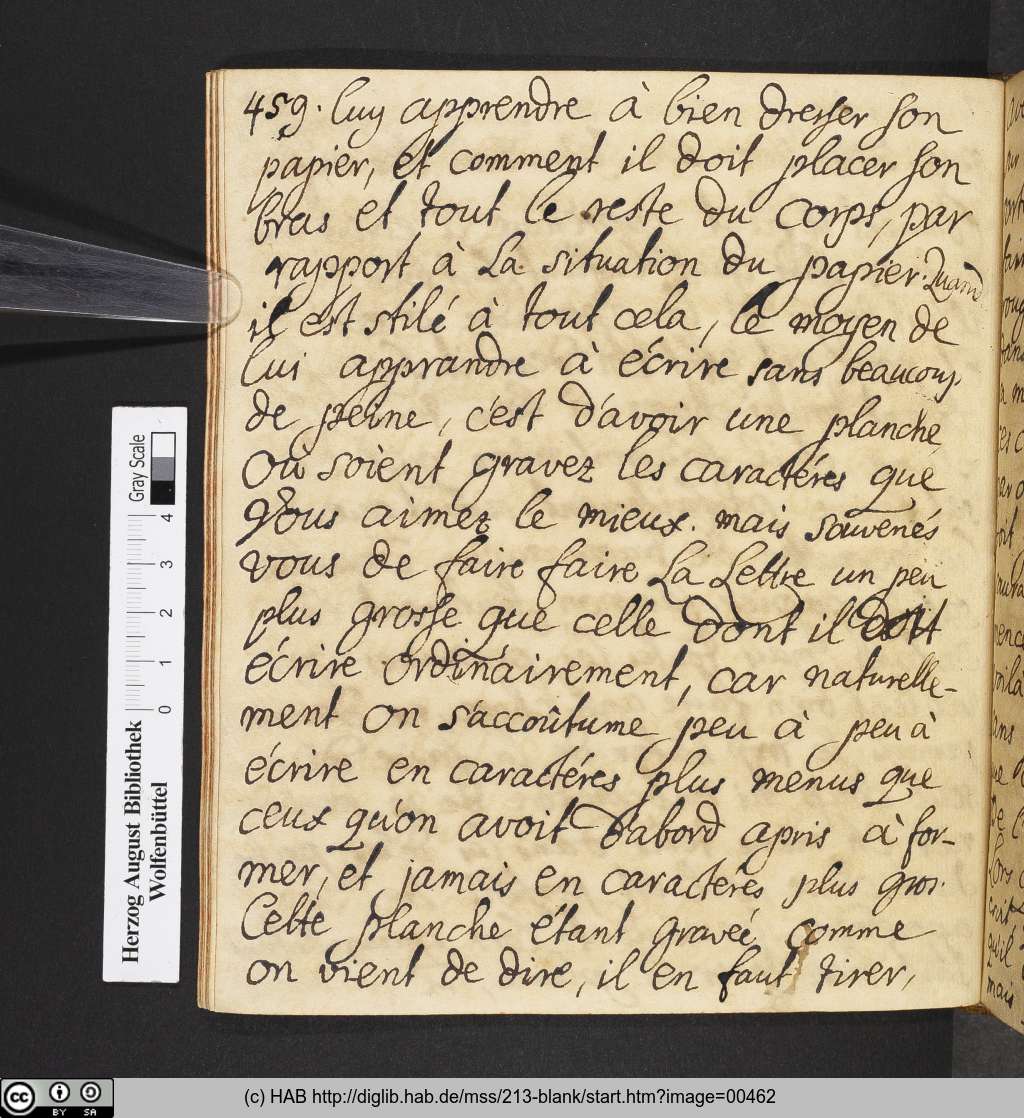 459. luy apprendre à bien dresser son
papier, et comment il doit placer son
bras et tout le reste du corps, par
rapport à La situation du papier. Quand
il est stilé à tout cela, le moyen de
lui apprandre à écrire sans beaucoup
de peine, c'est d'avoir une planche
Où soient gravez les caractéres que
Vous aimez le mieux. mais souvenés
vous de faire faire La Lettre un peu
plus grosse que celle dont il doit
écrire ordinairement, car naturelle-
ment on s'accoûtume peu à peu à
écrire en caractéres plus menus que
ceux qu'on avoit d'abord apris à for-
mer, et jamais en caracteres plus gros.
Cette planche étant gravée comme
on vient de dire, il en faut tirer,
Gray Scale
0 1 2 3 4
Herzog August Bibliothek
Wolfenbüttel
cc BY SA
(c) HAB http://diglib.hab.de/mss/213-blank/start.htm?image=00462